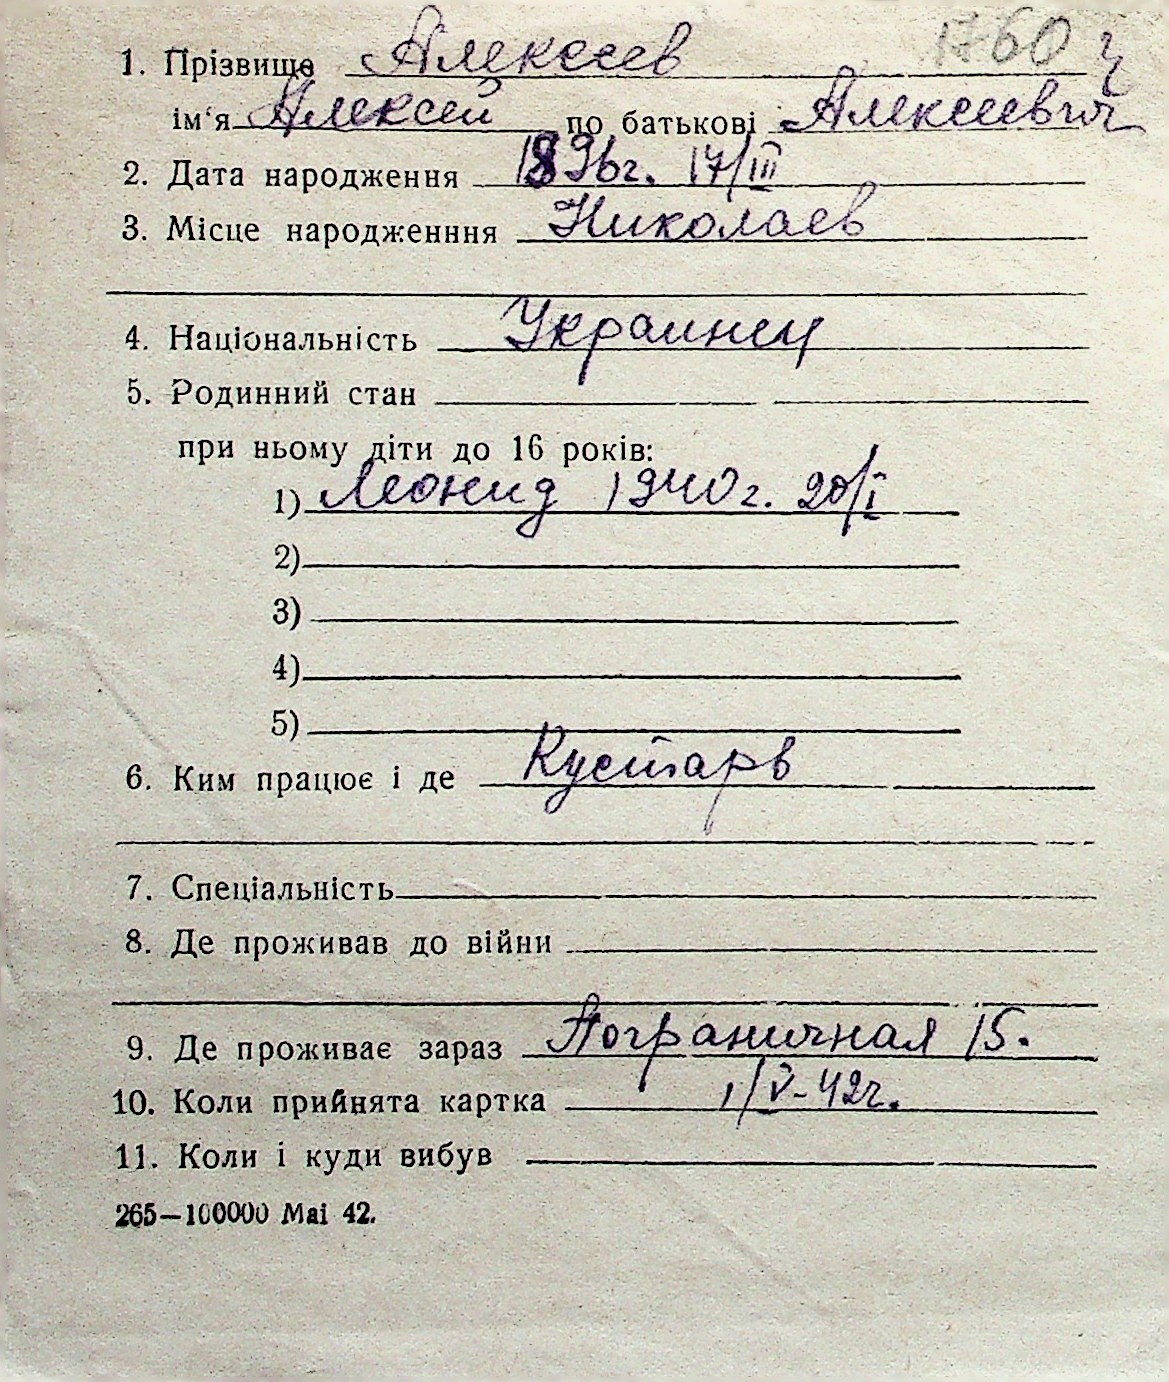 1760 ч
1. Прізвище Алексеев
ім'я Алексей по батькові Алексеевич
2. Дата народження 1896г. 17/III
3. Місце народженння Николаев
4. Національність Украинец
5. Родинний стан
при ньому діти до 16 років:
1) Леонид 1940г. 20/I
2)
3)
4)
5)
6. Ким працює і де Кустарь
7. Спеціальність
8. Де проживав до війни
9. Де проживає зараз Пограничная 15.
10. Коли прийнята картка 1/V-42г.
11. Коли і куди вибув
265—100000 Маі 42.